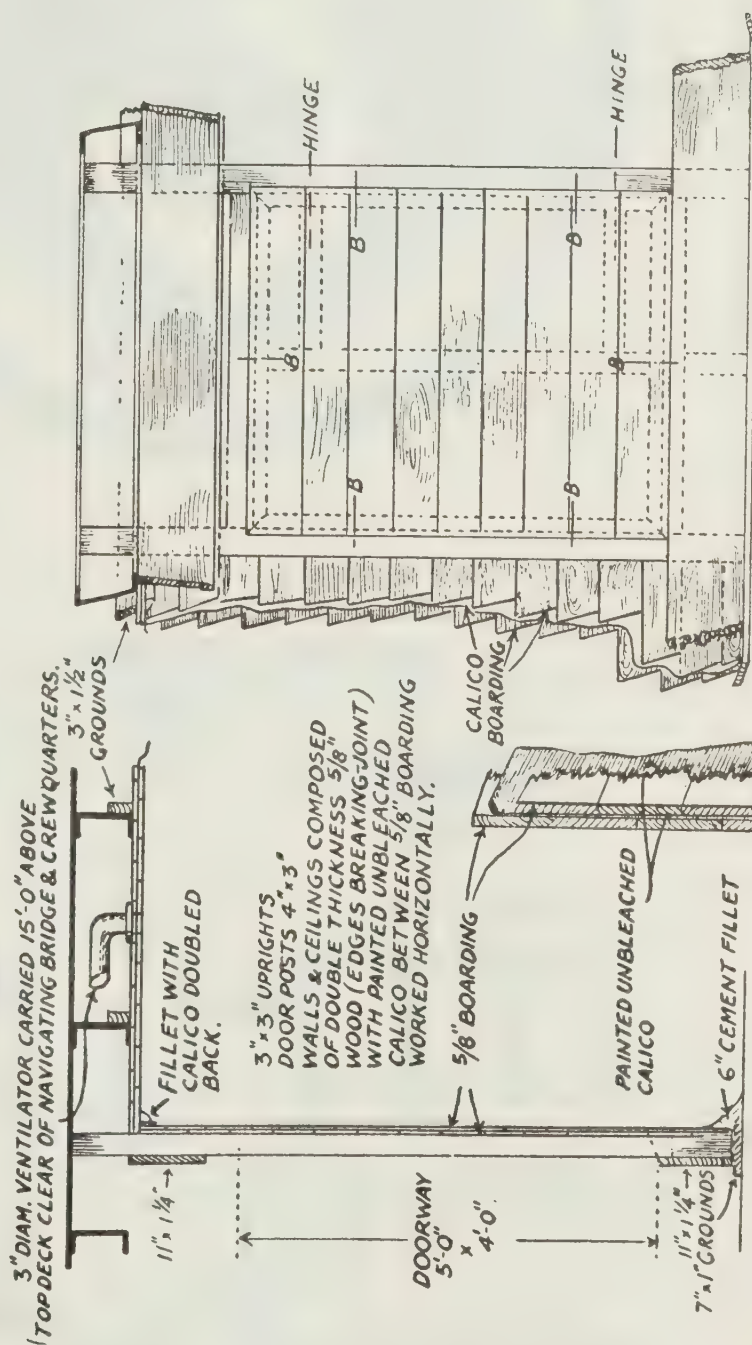 3" DIAM. VENTILATOR CARRIED 15'-0" ABOVE
TOP DECK CLEAR OF NAVIGATING BRIDGE & CREWQUARTERS.
3" x 1½"
GROUNDS
FILLET WITH
CALICO DOUBLED
BACK.
11" x 1¼"
3" x 3" UPRIGHTS
DOOR POSTS 4" x 3"
WALLS & CEILINGS COMPOSED
OF DOUBLE THICKNESS 5/8"
WOOD (EDGES BREAKING-JOINT)
WITH PAINTED UNBLEACHED
CALICO BETWEEN 5/8" BOARDING
WORKED HORIZONTALLY.
DOORWAY
5'-0"
x
4'-0"
5/8" BOARDING
PAINTED UNBLEACHED
CALICO
6" CEMENT FILLET
11" x 1¼"
7" x 1" GROUNDS
CALICO
BOARDING
HINGE
HINGE
B
B
B
B
B
B